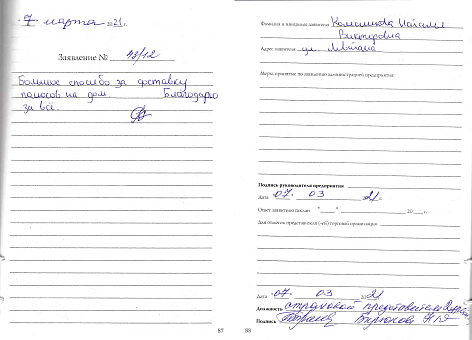 7 марта 2021 г.
Заявление № 43/12
Большое спасибо за доставку
полюсов на дом. Благодарю
за всё.
87
Фамилия и инициалы заявителя
Викторовна
Адрес заявителя ул.
Меры, принятые по заявлению администрацией предприятия:
Подпись руководителя предприятия
Дата 07. 03 2021
Ответ заявителю послан " " 20 г.
Для отметок представителя (-ей) торговой организации
Дата 07. 03 2021
Должность страховой представитель
Подпись Бирюкова
88